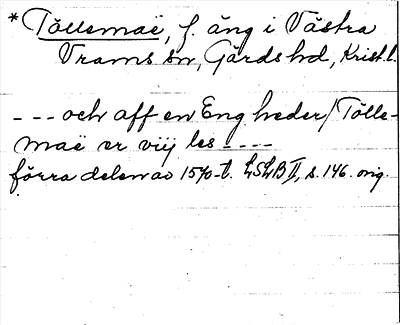 *Töllemaë, f. äng i Västra
Vrams sn, Gärds hd, Krist.l.
--- och aff en Eng heder / Tölle-
maë er viij les ----
förra delen av 1570-t. LSLB II, s. 146. orig.